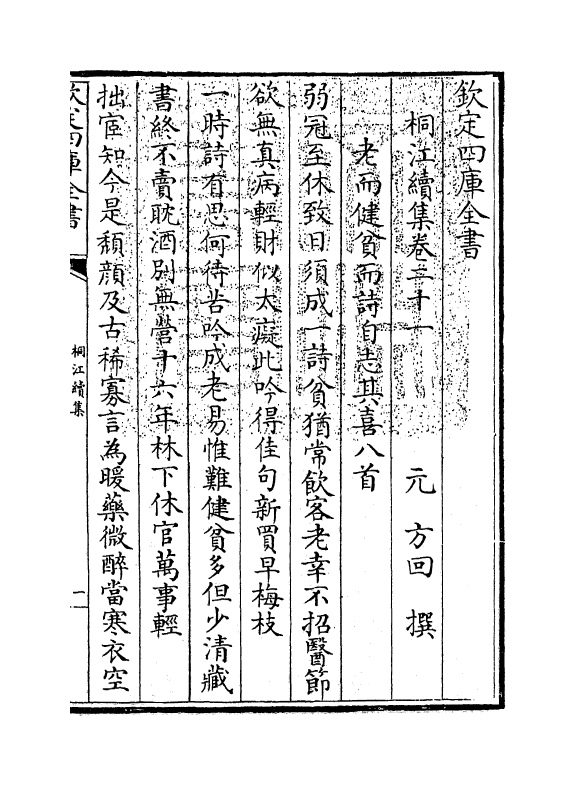 欽定四庫全書
桐江續集卷二十一
元 方回 撰
老而健貧而詩自志其喜八首
弱冠至休致日須成一詩貧猶常飲客老幸不招醫節
欲無真病輕財似太癡此吟得佳句新買早梅枝
一時詩有思何待苦吟成老易惟難健貧多但少清藏
書終不賣耽酒別無營十六年林下休官萬事輕
拙宦知今是頽顔及古稀寡言為暖藥微醉當寒衣空
欽定四庫全書
桐江續集
一